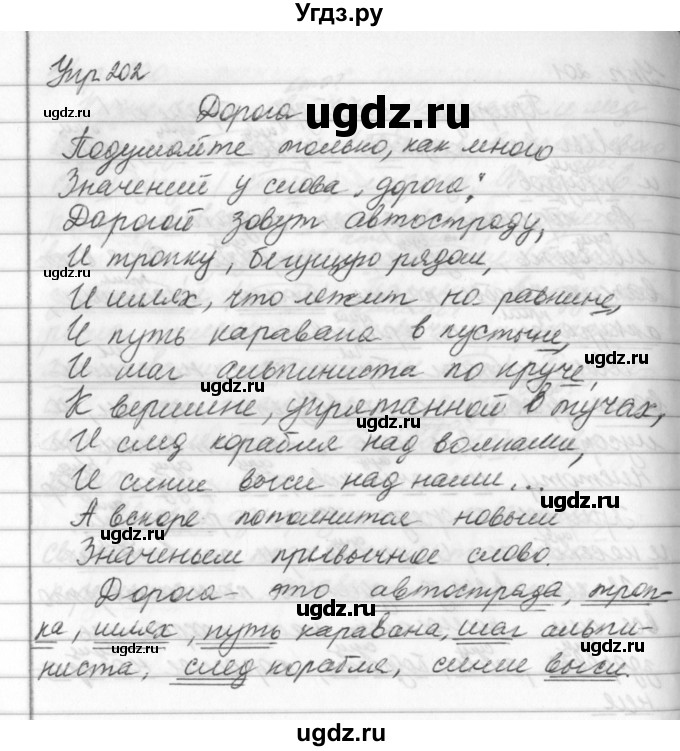 Угдз.ру
Упр 202
Дорога
Подумайте только, как много
Значений у слова „дорога,"
Дорогой зовут автостраду,
И тропку, бегущую рядом,
И шлях, что лежит на равнине,
И путь каравана в пустыне,
И шаг альпиниста по круче,
К вершине, упрятанной в тучах,
И след корабля над волнами,
И синие выси над нами...
А вскоре пополнится новым
Значеньем привычное слово.
Дорога - это автострада, троп-
ка, шлях, путь каравана, шаг альпи-
ниста, след корабля, синие выси.
ugdz.ru
ugdz.ru
ugdz.ru
ugdz.ru
ugdz.ru
ugdz.ru
ugdz.ru
ugdz.ru
ugdz.ru
ugdz.ru
ugdz.ru